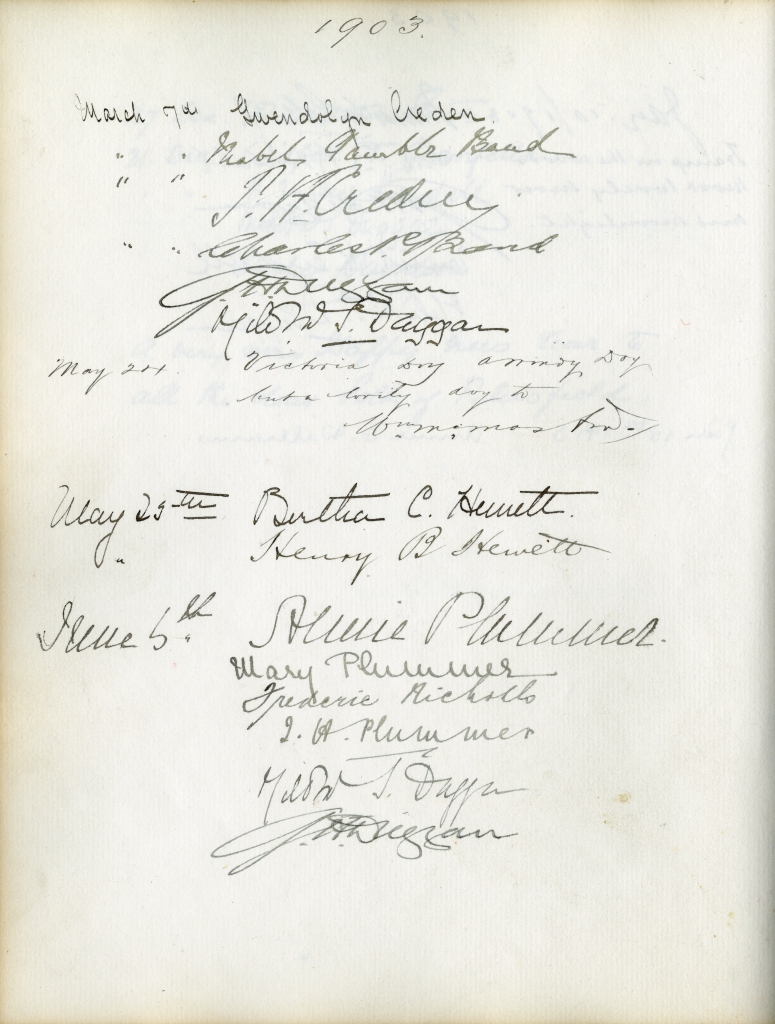 1903.
March 7th Gwendolyn Creden.
" " Mabel Gamble Band
" " T. H. Creden
" " Charles P. Band
G. H. Duggan
Mildred S. Duggan
May 24. Victoria Day a windy Day
but a lovely day to
May 25th Bertha C. Hewett.
" Henry B Hewett
June 6th. Annie Plummer.
Mary Plummer
Frederic Nicholls
J. H. Plummer
Mildred S. Duggan
G. H. Duggan